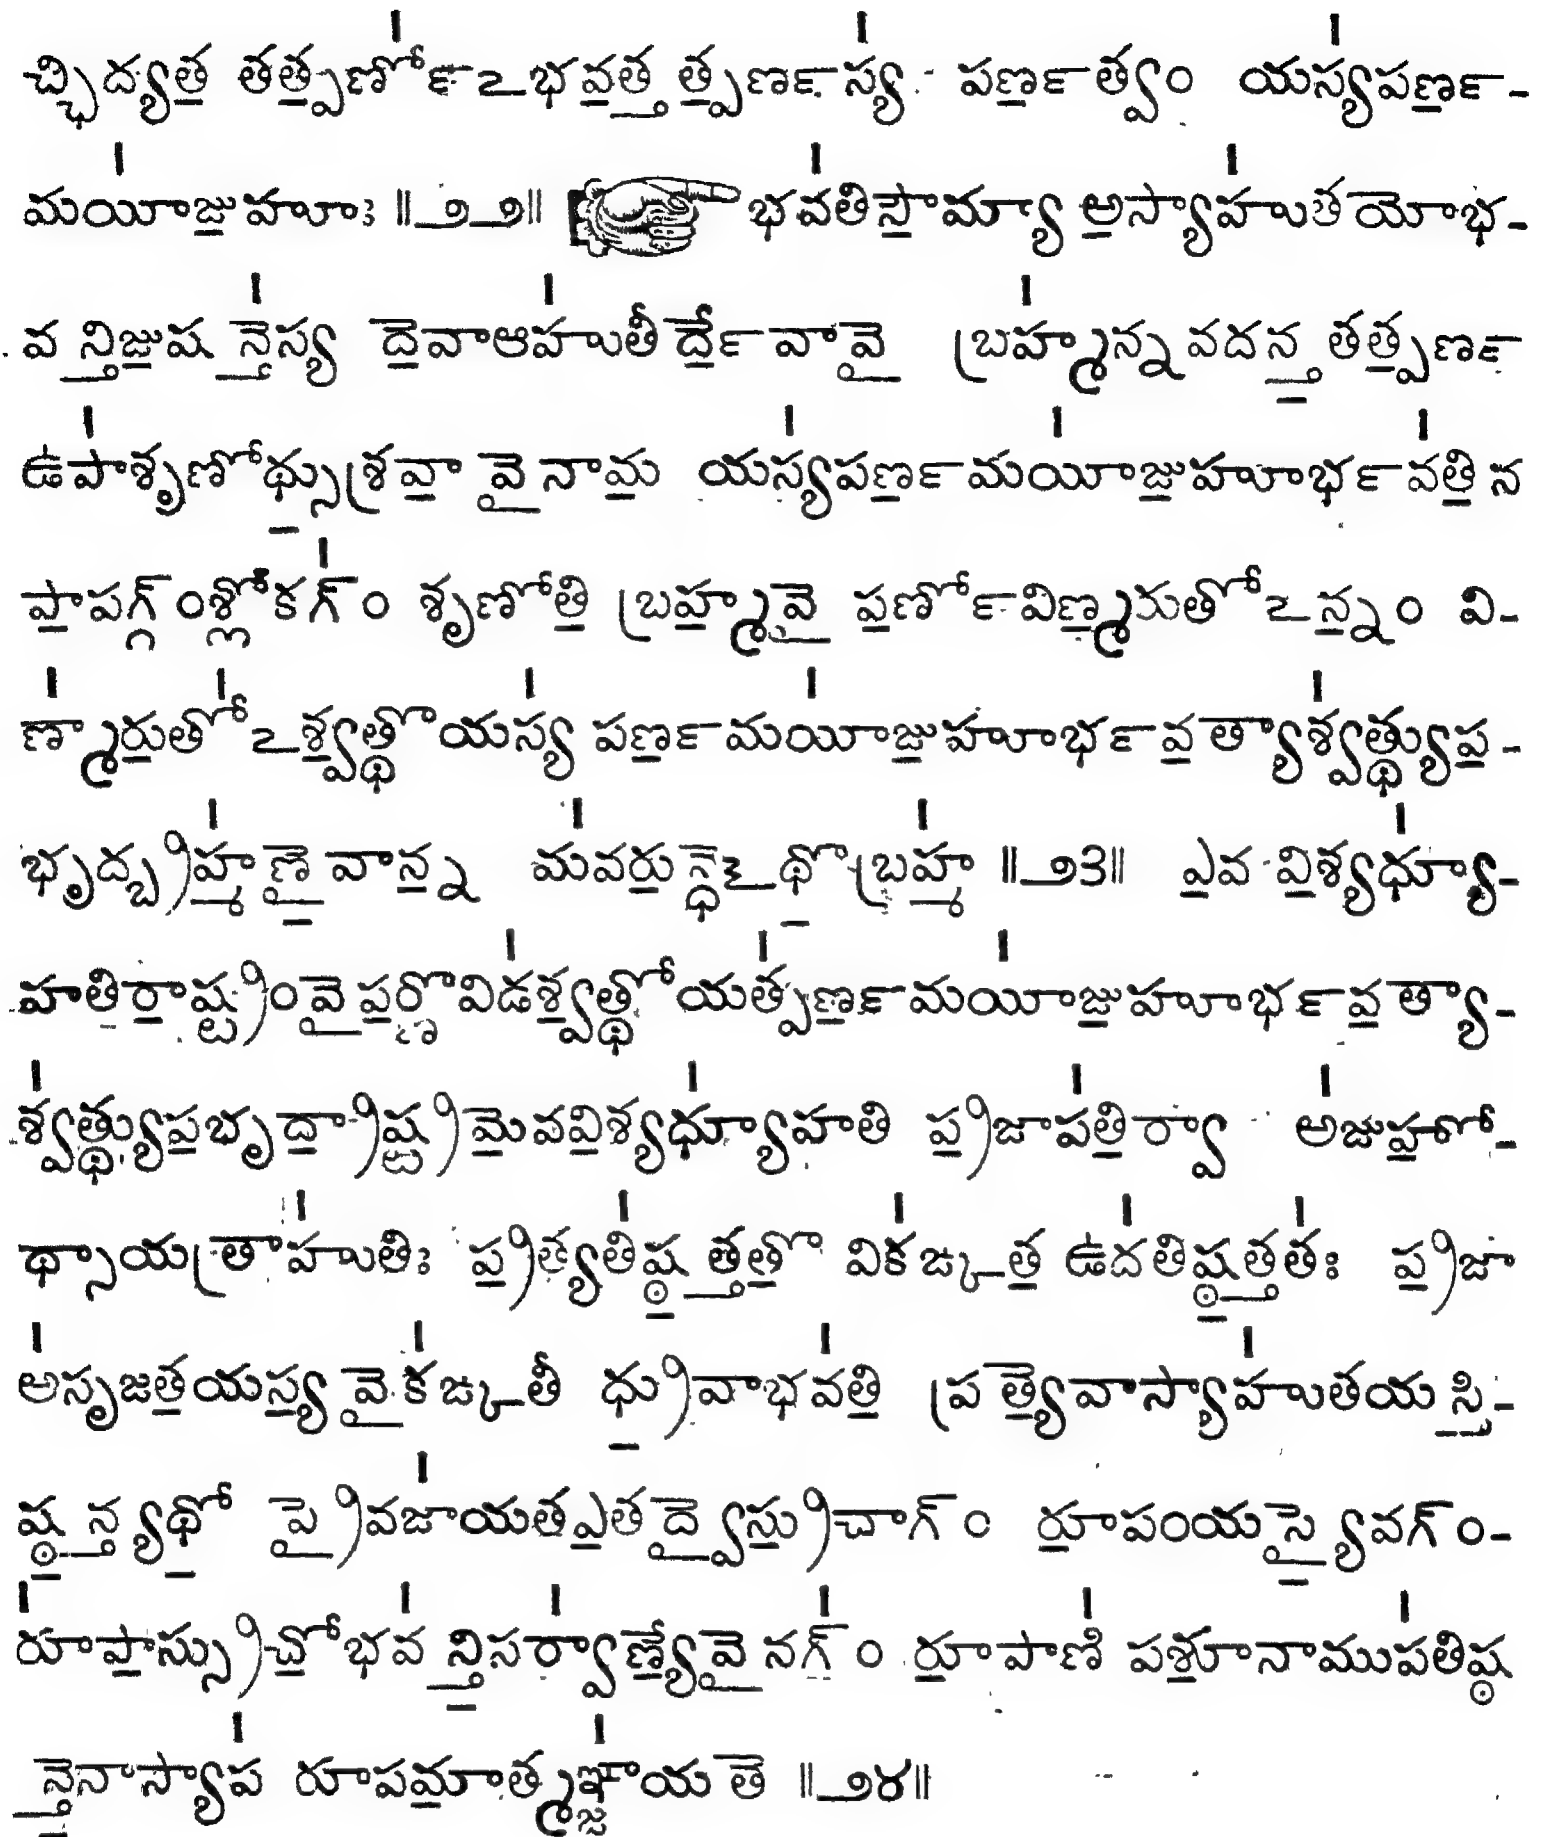 చ్ఛిద్యత॒ తత్ప॒ర్ణో॑ఽభవ॒త్త త్ప॒ర్ణస్య॑ పర్ణ॒త్వం యస్య॑పర్ణ॒-
మయీ॑జు॒హూః ॥౨౨॥ భవ॑తిసౌ॒మ్యా అ॒స్యాహు॑తయోభ-
వ న్తి॒జు॒ష న్తే॑స్య దే॒వాఆహు॑తీర్దే॒వావై బ్రహ్మ॑న్న వదన్త॒ తత్ప॒ర్ణ
ఉపా॑శృణోథ్సు॒శ్రవా॒ వై నామ॒ యస్య॑పర్ణ॒మయీ॑జు॒హూర్భవ॑తి॒ న
పా॒పగ్గ్ంశ్లోకగ్॑ం శృణోతి॒ బ్రహ్మ॒వై ప॒ర్ణోవిణ్మ॒రుతోఽన్న॒ం వి-
ణ్మా॑రు॒తో॑ఽశ్వ॒త్థోయస్య॑ పర్ణ॒మయీ॑జు॒హూర్భవ॒త్యాశ్వ॑త్థ్యుప॒-
భృద్బ్రహ్మ॑ణై॒ వాన్న॒ మవ॑రు॒న్ధేఽథో॒బ్రహ్మ॑ ॥౨౩॥ ఎ॒వ వి॒శ్యధ్యూ॑-
హతిరా॒ష్ట్రంవైప॒ర్ణోవిడ॑శ్వ॒త్థోయత్ప॑ర్ణ॒మయీ॑జు॒హూర్భవ॒త్యా-
శ్వ॑త్థ్యుప॒భృద్రా॒ష్ట్రమే॒వవి॒శ్యధ్యూ॑హతి ప్ర॒జాప॑తి॒ర్వా అ॑జుహ॒ణో-
థ్సాయత్రాహు॑తిః ప్ర॒త్యతి॑ష్ఠ॒ త్తతో॒ విక॑ఙ్కత॒ ఉద॑తిష్ఠ॒త్తత॑ః ప్ర॒జా
అ॑సృజత॒యస్య॒ వైక॑ఙ్కతీ ధ్రు॒వాభవ॑తి॒ ప్రత్యే॒వాస్యాహు॑తయ స్తి॒-
ష్ఠ॒న్త్యథో॒ ప్రైవజా॑యతఎ॒తద్వై॒స్రు॒చాగ్ం రూ॒పంయస్యై॒వగ్ం-
రూ॑పా॒స్స్రుచో॒భవ॑ న్తి॒సర్వా॑ణ్యే॒వై నగ్॑ం రూ॒పాణి॑ పశూ॒నాముప॑తిష్ఠ
న్తే॒నాస్యాప॑ రూపమా॒త్మఞ్జా॑య తే ॥౨౪॥